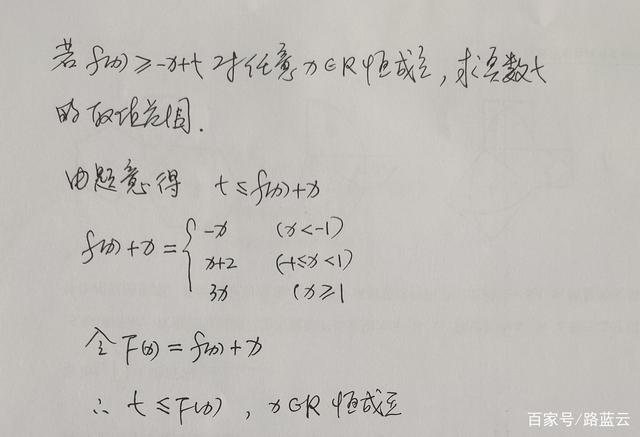 若f(x)≥-x+t 对任意x∈R恒成立,求实数t
的取值范围.
由题意得 t≤f(x)+x
f(x)+x={-x (x<-1)
x+2 (-1≤x<1)
3x (x≥1
令F(x)=f(x)+x
∴ t≤F(x), x∈R恒成立
百家号/路蓝云